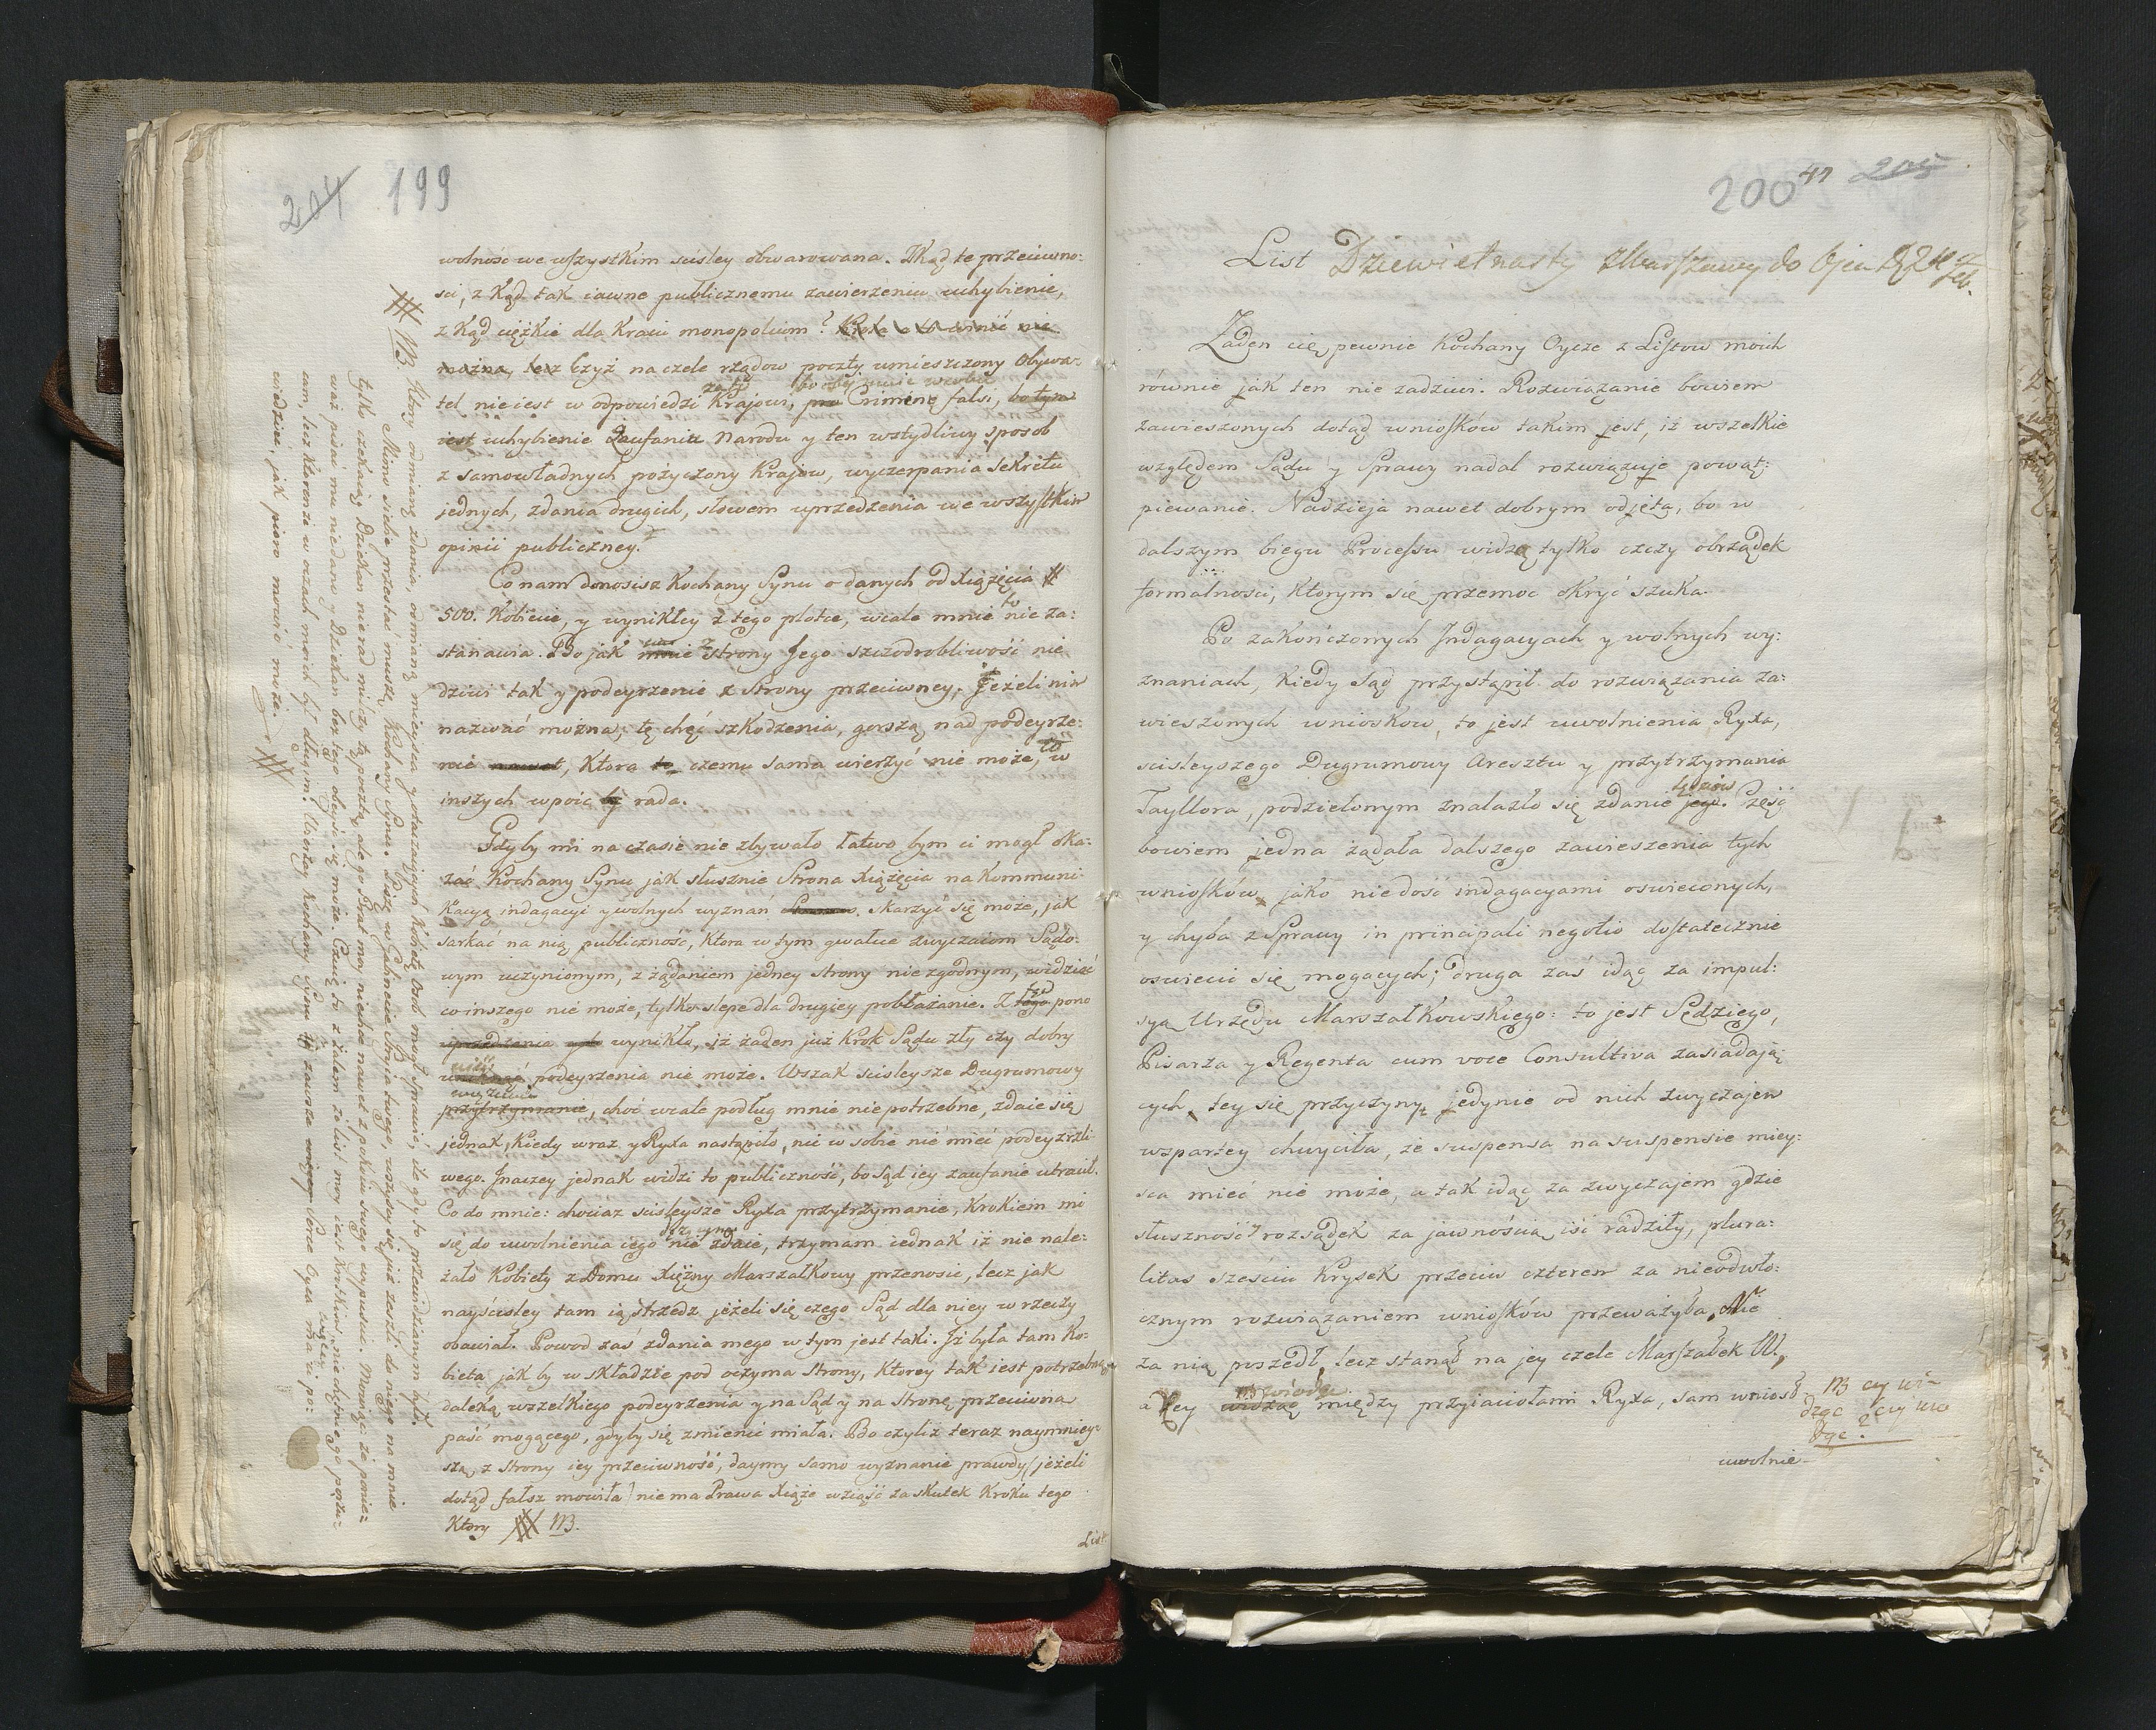 204 199
wolność we wszystkim scisley obwarowana. Zkąd te przeciwno:
sci, z kąd tak iawne publicznemu zawierzeniu uchybienie,
z kąd ciężkie dla Kraiu monopolium?
można, lecz Czyż na czele rządow poczty umieszczony Obywa:
za tę
tel nie iest w odpowiedzi Krajowi, pro Crimine falsi, bo tym
iest uchybienie Zaufania Narodu y ten wstydliwy sposob
z samowładnych pożyczony Krajow, wyczerpania sekretu
jednych, zdania drugich, słowem uprzedzenia we wszystkim
opinii publiczney.
Co nam donosisz Kochany Synu o danych od Xiążęcia #
500. Kobiecie, y wynikłey z tego plotce, wcale mnie to nie za:
stanawia. Bo jak mnie z strony Jego szczodrobliwość nie
dziwi tak y podeyrzenie z strony przeciwney. Jeżeli nim
nazwać można, tę chęć szkodzenia, gorszą nad podeyrze:
nie nawet, ktora to czemu sama wierzyć nie może, to w
inszych wpoić by rada.
Gdyby mi na czasie nie zbywało łatwo bym ci mogł oka:
zać Kochany Synu jak słusznie Strona Xiążęcia na Kommuni
kacyą indagacyi y wolnych wyznań skarżyć się może, jak
sarkać na nią publiczność, ktora w tym gwałcie zwyczaiom Sądo:
wym uczynionym, z żądaniem jedney strony niezgodnym, widzieć
co inszego nie może, tylko slepe dla drugiey pobłażanie. Z tego pono
uprzedzenia wynikło, iż żaden już krok Sądu zły czy dobry
uniknąć podeyrzenia nie może. Wszak scisleysze Dugrumowy
więzienie
przytrzymanie, choć wcale podług mnie niepotrzebne, zdaie się
jednak, kiedy wraz y Ryxa nastąpiło, nic w sobie nie mieć podeyzrzli
wego. Inaczey jednak widzi to publiczność, bo Sąd iey zaufanie utracił.
Co do mnie: chociaz scisleysze Ryxa przytrzymanie, krokiem mi
się do uwolnienia iego nie zdaie, trzymam iednak iż nie nale:
żało Kobiety z Domu Xiężny Marszałkowy przenosić, lecz jak
nayscisley tam ią strzedz jeżeli się czego Sąd dla niey w rzeczy
obawiał. Powod zaś zdania mego w tym jest taki. Iż była tam Ko:
bieta jak by w składzie pod oczyma Strony, ktorey tak iest potrzebną
daleką wszelkiego podeyrzenia y na Sąd y na Stronę przeciwna
paść mogącego, gdyby się zmienić miała. Bo czyliż teraz naymniey:
szą z strony iey przeciwność, daymy samo wyznanie prawdy (jeżeli
dotąd fałsz mowiła) nie ma Prawa Xiąże wziąść za skutek kroku tego
ktory # NB.
List
# NB. Ktory odmianą zdania, odmianą mieysca y otaczaiących Kobietę osob mogł sprawić, ile gdy to przewidzianym było.
Mimo siebie przestać muszę Kochany Synu. Piszę w Gabinecie Stryia twego, wszyscy się już zeszli do niego na mnie
tylko czekaią, Dziekan nie rad mieszy tą pocztą, ale go Brat moy niechce nawet z pokoiu swego wypuścić. Mowiąc: że ponie:
waż pisać mu nie dano y Dziekan bez tego obeyść się może. Czuię to z żalem że list moy iest krotkim, nie chętnego pożu:
cam, lecz ktorenże w oczach moich był długim. Uważay Kochany Synu że zawsze więcey serce Oyca mawi po:
wiedzieć, jak pioro mowić może. #
200 41 205
List Dziewiętnasty z Warszawy do Ojca
Zaden cię pewnie Kochany Oycze z Listow moich
równie jak ten nie zadziwi. Rozwiązanie bowiem
zawieszonych dotąd wniosków takim jest, iż wszelkie
względem Sądu y Sprawy nadal rozwiązuje powąt:
piewanie. Nadzieja nawet dobrym odjęta, bo w
dalszym biegu Processu widzą tylko czczy obrządek
formalności, którym się przemoc okryć szuka.
Po zakończonych Indagacyach y wolnych wy:
znaniach, kiedy Sąd przystąpił do rozwiązania za:
wieszonych wniosków, to jest uwolnienia Ryxa,
scisleyszego Dugrumowy Aresztu y przytrzymania
Sędziów
Tayllora, podzielonym znalazło się zdanie jego. Część
bowiem jedna żądała dalszego zawieszenia tych
wniosków, jako nie dość indagacyami oswieconych,
y chyba z Sprawy in principali negotio dostatecznie
oswiecić się mogących; druga zaś idąc za impul:
syą Urzędu Marszałkowskiego: to jest Sędziego,
Pisarza y Regenta cum voce Consultiva zasiadają:
cych, tey się przyczyny, jedynie od nich zwyczajem
wspartey chwyciła, że suspensa na suspensie miey:
sca mieć nie może, a tak idąc za zwyczajem gdzie
słuszność y rozsądek za jawnością iść radziły, plura:
litas sześciu Krysek przeciw czterem za nieodwło:
cznym rozwiązaniem wniosków przeważyła. Nie
za nią poszedł, lecz stanął na jey czele Marszałek W,
a tey widząc między przyiaciołami Ryxa, sam wniosł
NB czy wi-
dząc czy wo
dząc?
uwolnie-